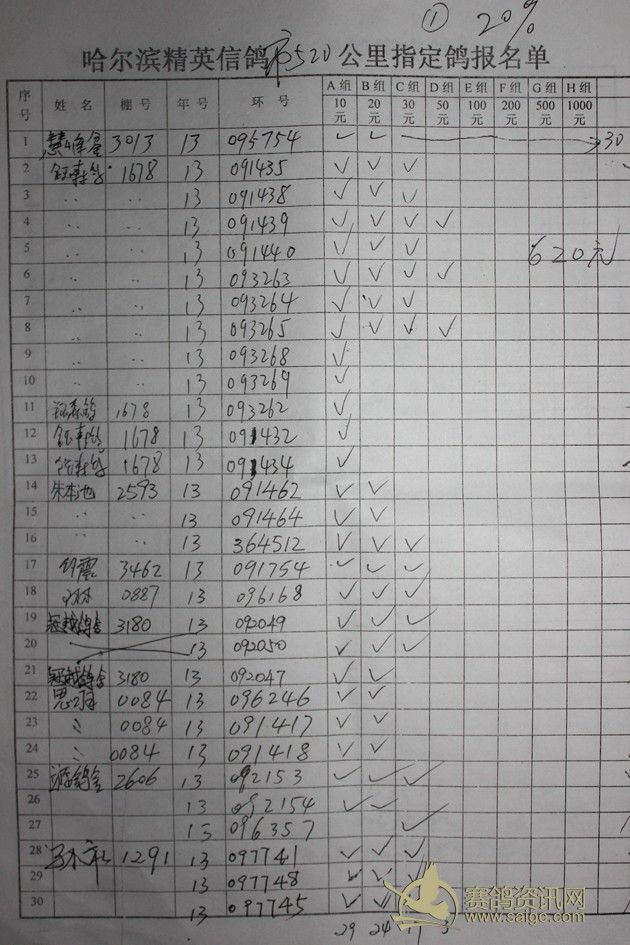 ① 20%
哈尔滨精英信鸽 520 公里指定鸽报名单
序号 姓名 棚号 年号 环号 A组 10元 B组 20元 C组 30元 D组 50元 E组 100元 F组 200元 G组 500元 H组 1000元
1 3013 13 095754 ✓ ✓ 30
2 1678 13 091435 ✓ ✓ ✓
3 〃 〃 13 091438 ✓ ✓ ✓
4 〃 〃 13 091439 ✓ ✓ ✓ ✓
5 〃 〃 13 091440 ✓ ✓ ✓ 620元
6 〃 〃 13 093263 ✓ ✓ ✓ ✓
7 〃 〃 13 093264 ✓ ✓ ✓
8 〃 〃 13 093265 ✓ ✓ ✓ ✓
9 〃 〃 13 093268 ✓
10 〃 〃 13 093269 ✓
11 1678 13 093262 ✓
12 1678 13 091432 ✓
13 1678 13 091434 ✓
14 朱本池 2593 13 091462 ✓ ✓
15 〃 〃 13 091464 ✓ ✓
16 〃 〃 13 364512 ✓ ✓ ✓
17 3462 13 091754 ✓ ✓ ✓
18 0887 13 096168 ✓ ✓ ✓
19 3180 13 092049 ✓ ✓ ✓
20 13 092050 ✓ ✓ ✓
21 3180 13 092047 ✓ ✓
22 0084 13 096246 ✓ ✓
23 〃 0084 13 091417 ✓ ✓
24 〃 0084 13 091418 ✓ ✓
25 2606 13 092153 ✓ ✓ ✓
26 13 092154 ✓ ✓
27 13 096357 ✓
28 1291 13 097741 ✓ ✓ ✓
29 13 097748 ✓ ✓ ✓
30 13 097745 ✓ ✓
29 24
赛鸽资讯网
www.saige.com